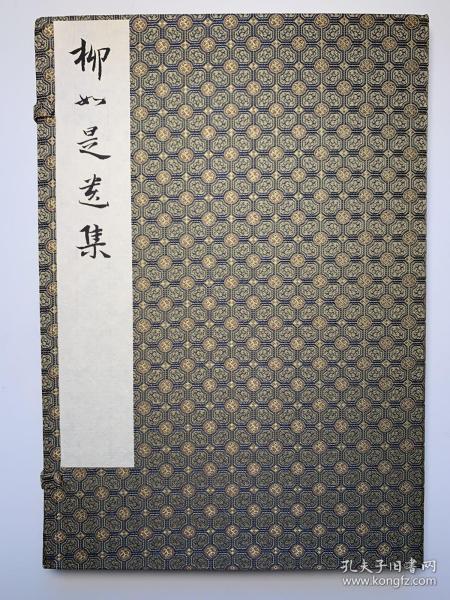 柳如是遗集
孔夫子旧书网
www.kongfz.com